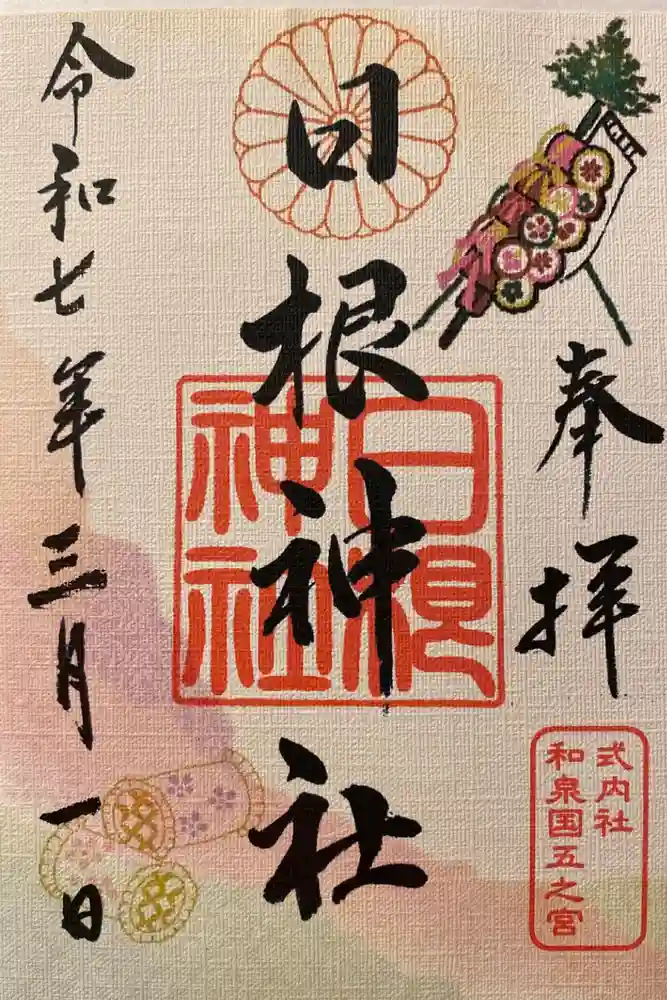 奉拝
式内社
和泉国五之宮
日根神社
日根
神社
令和七年三月一日